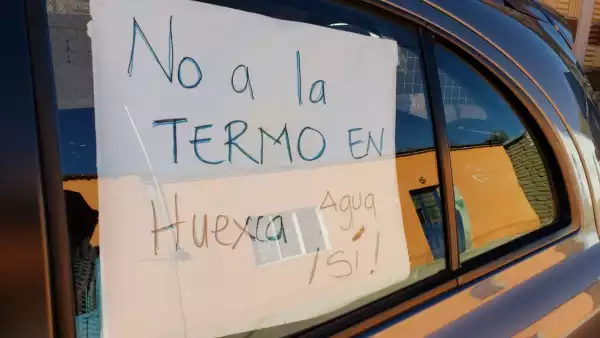 No a la
TERMO EN
Huexca Agua
¡SÍ!